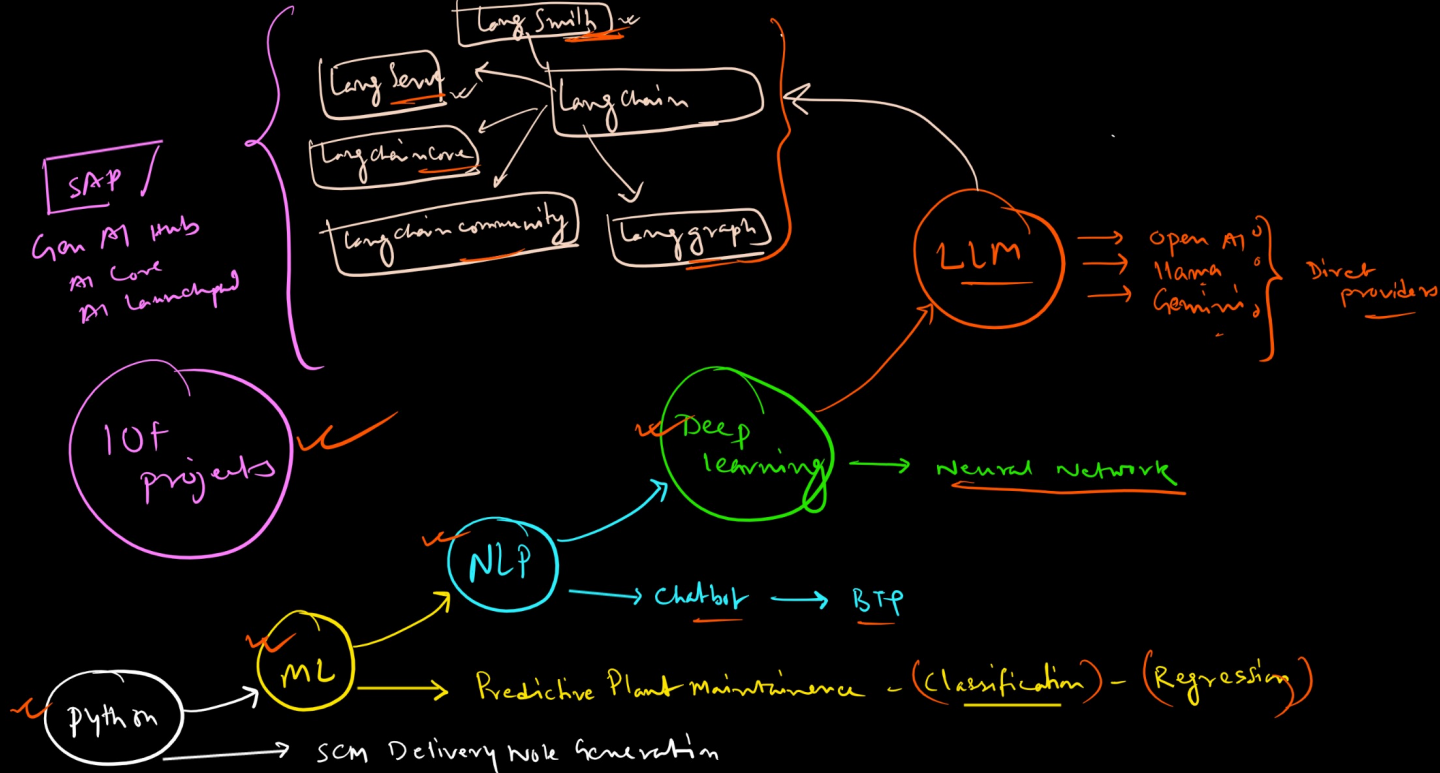 Lang Smith
Lang Serve
Lang chain
Lang chain Core
Lang chain community
Lang graph
SAP
Gen AI Hub
AI Core
AI Launchpad
LLM
Open AI
llama
Gemini
Direct
providers
10+
projects
Deep
learning
Neural Network
NLP
Chatbot
BTP
ML
Predictive Plant Maintainence - (Classification) - (Regression)
Python
SCM Delivery Note Generation